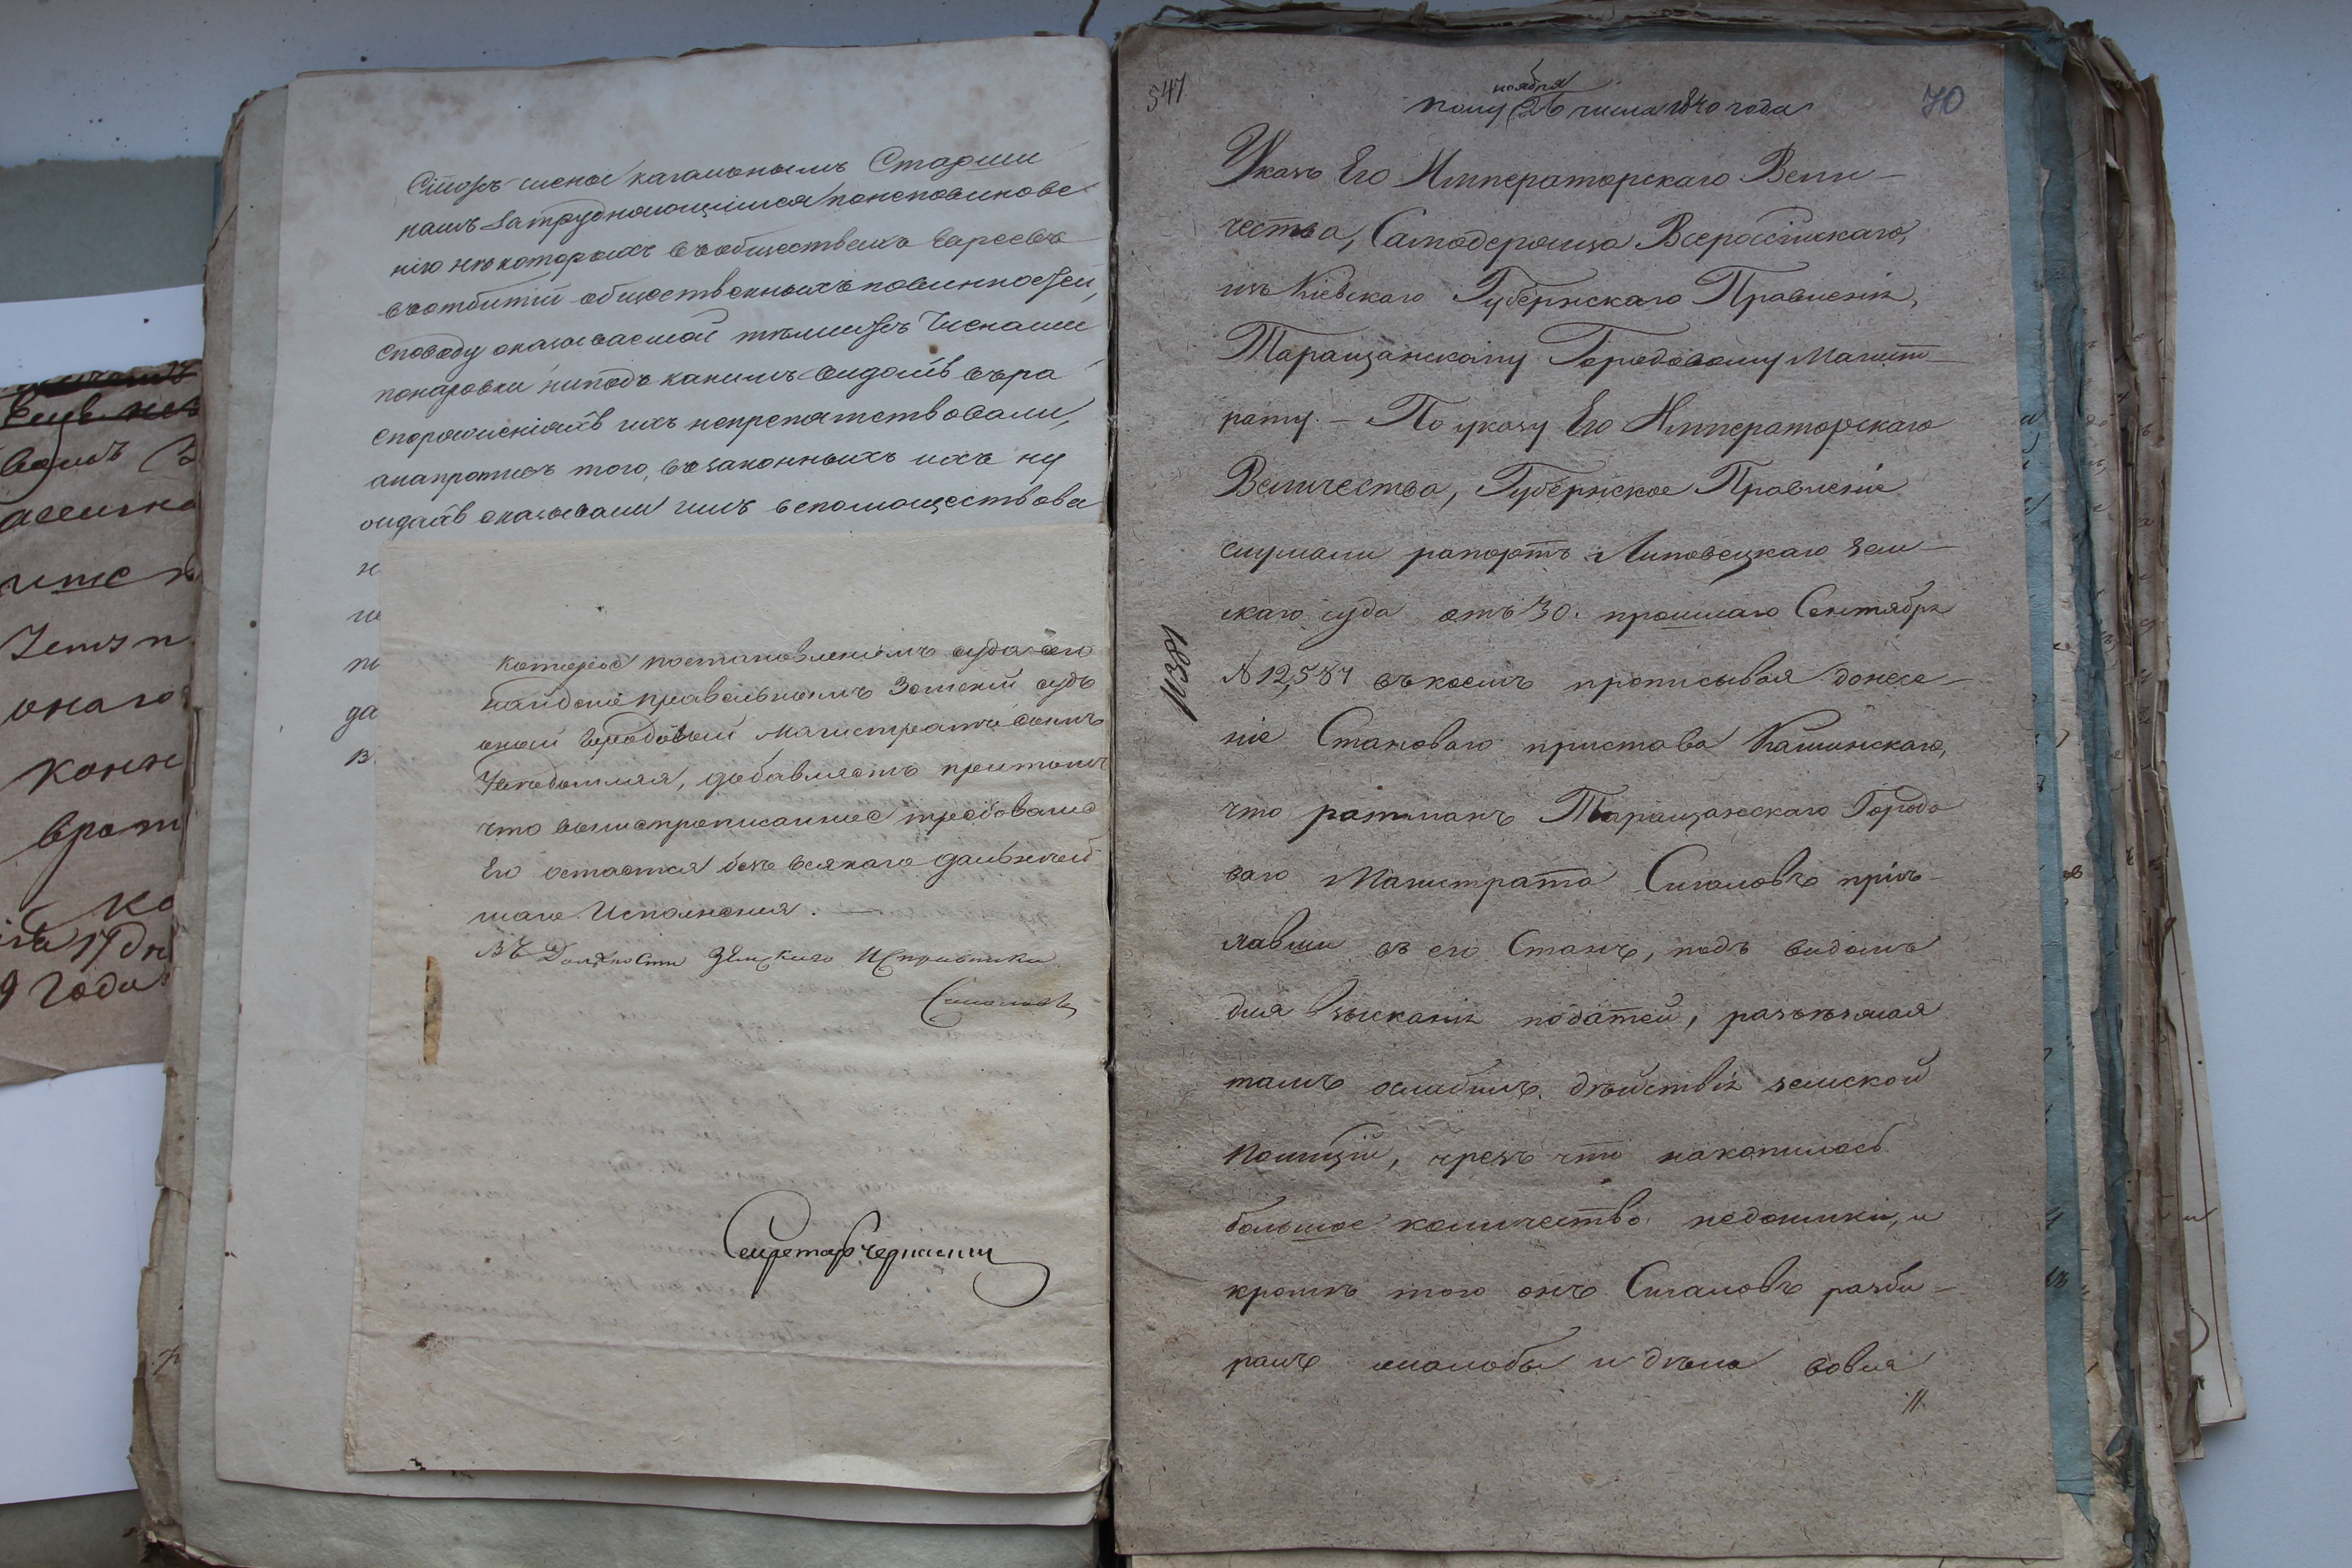 нашъ затрудняющимся понеповинове
нію некоторыхъ въ обществахъ Евреевъ
въ отбытіи общественныхъ повинностей,
споводу оказываемой
понаровки ниподъ какимъ видомъ въ ра
споряженіяхъ ихъ непрепятствовали,
анапротивъ того, въ законныхъ ихъ ну
ждахъ оказывали имъ вспомоществова
н
ш
по
да
в
которое постановленіемъ суда сего
найдено правельнымъ Земскій судъ
оной Городовый Магистратъ симъ
Уведомляя, добавляетъ притомъ
что вышепрописанное требованіе
Его остается безъ всякаго дальней
шаго Исполнения.
Въ Должности Земскаго Исправника
Секретарь
547
ноября
Полу 26 числа 1840 года
70
Указъ Его Императорскаго Вели-
чества, Самодержца Всероссійскаго,
изъ Кіевскаго Губернскаго Правленія,
Таращанскому Городовому Магист-
рату. – По указу Его Императорскаго
Величества, Губернское Правленіе
слушали рапортъ Липовецкаго зем-
скаго суда отъ 30. прошлаго Сентября
№ 12,587 въ коемъ прописывая донесе-
ніе Становаго пристава Кашинскаго,
что ратманъ Таращанскаго Городо
ваго Магистрата Сигаловъ прівъ-
лавши въ его Станъ, подъ видомъ
для взысканія податей, разъезжая
тамъ ослабилъ дѣйствія земской
Полиціи, чрезъ что накопилось
большое количество недоимки, и
кромѣ того онъ Сигаловъ разби-
ралъ жалобы и дѣла